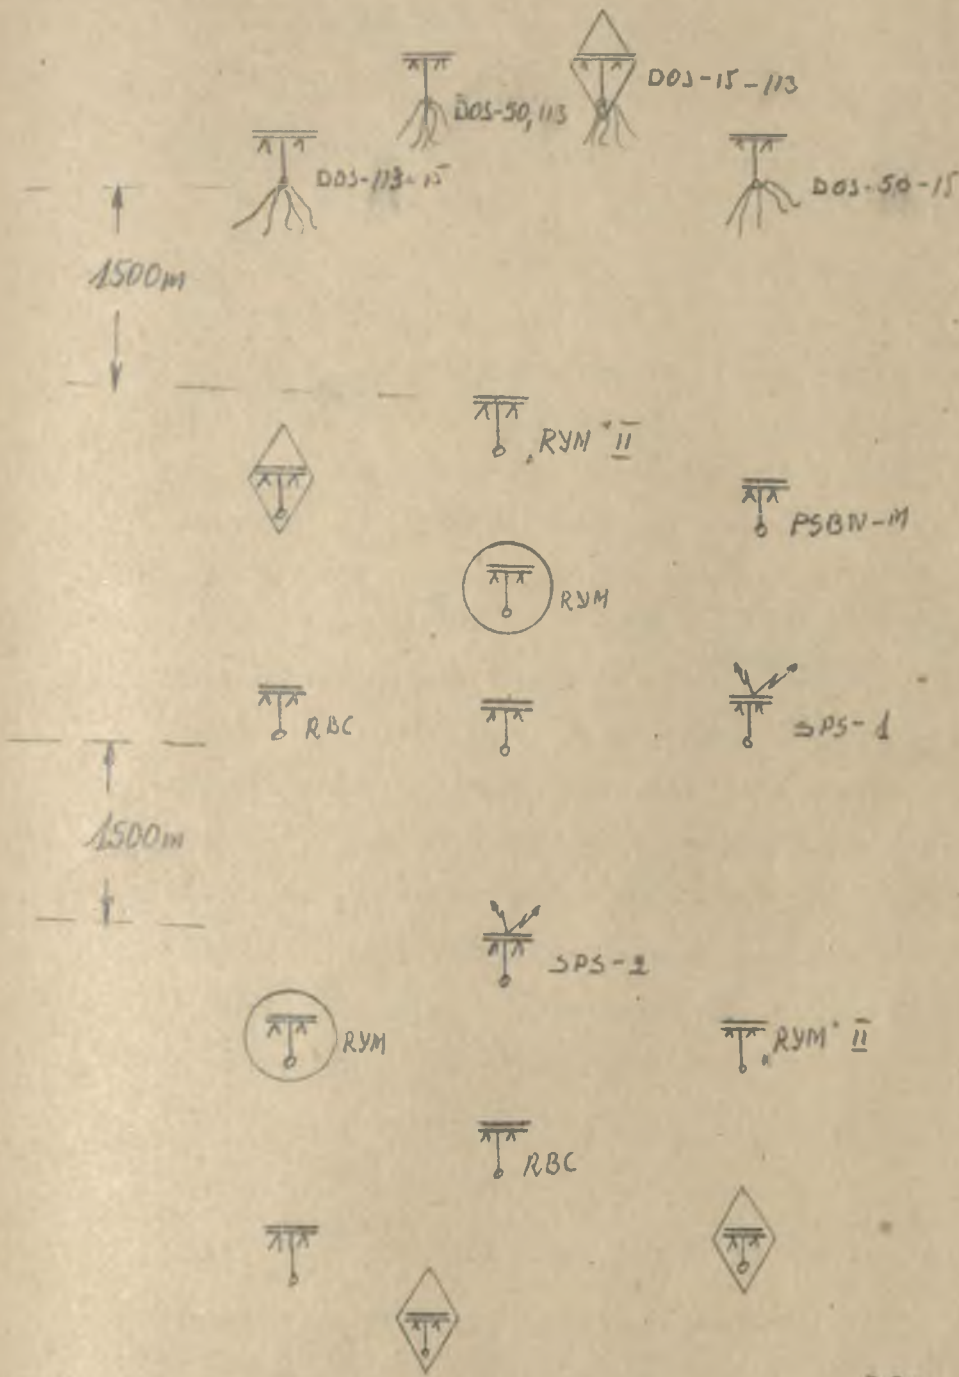 DOS-15-113
DOS-50,113
DOS-113-15
DOS-50-15
1500m
RYM II
PSBN-M
RYM
RBC
SPS-1
1500m
SPS-2
RYM
RYM II
RBC